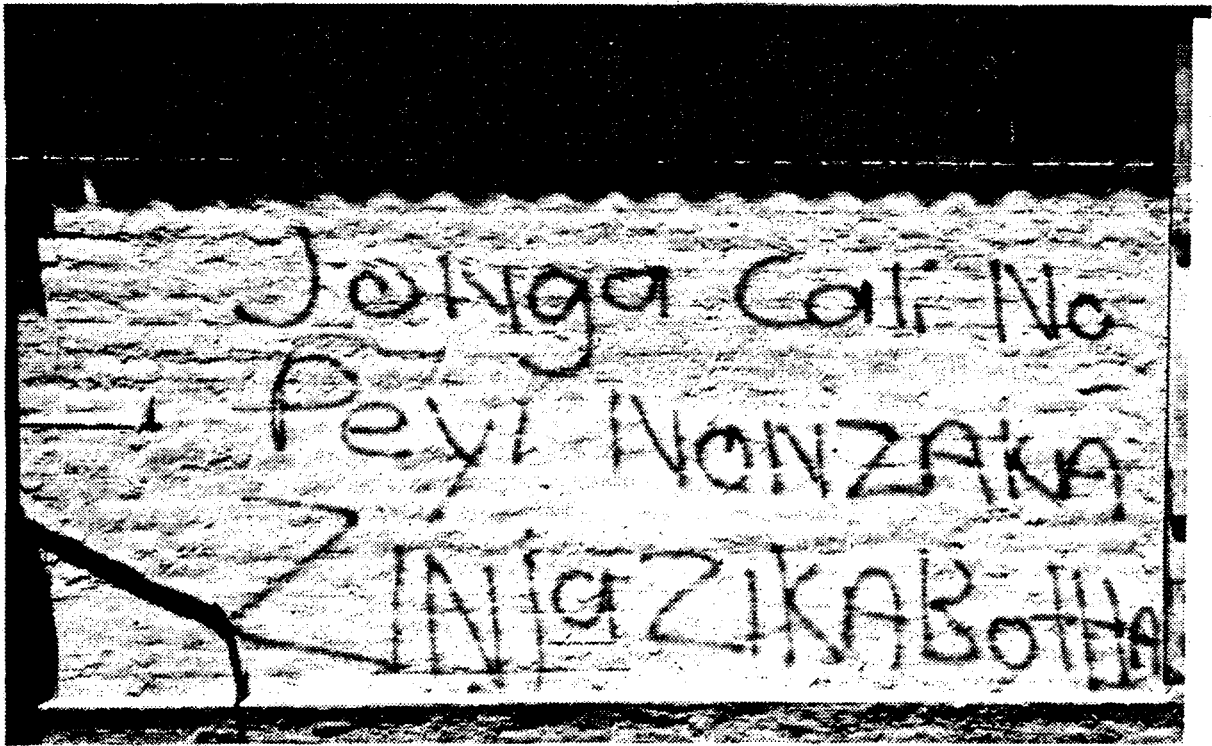 Jonga Cali No
Peyi NoNZAKA
ZINJa ZIKABOTHA